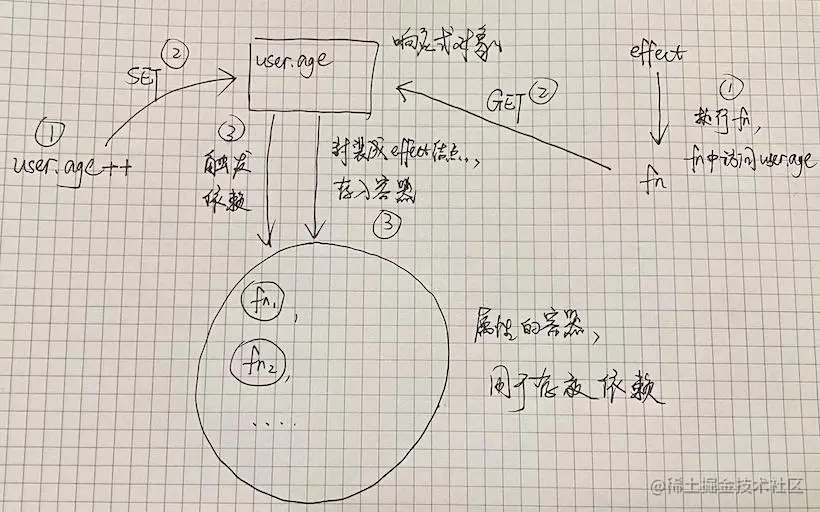 user.age
响应式对象
effect
SET
②
①
user.age++
GET
②
①
执行fn,
fn中访问user.age
fn
③
触发
依赖
封装成effect结点,
存入容器
③
fn1,
fn2,
....
属性的容器,
用于存放依赖
@稀土掘金技术社区